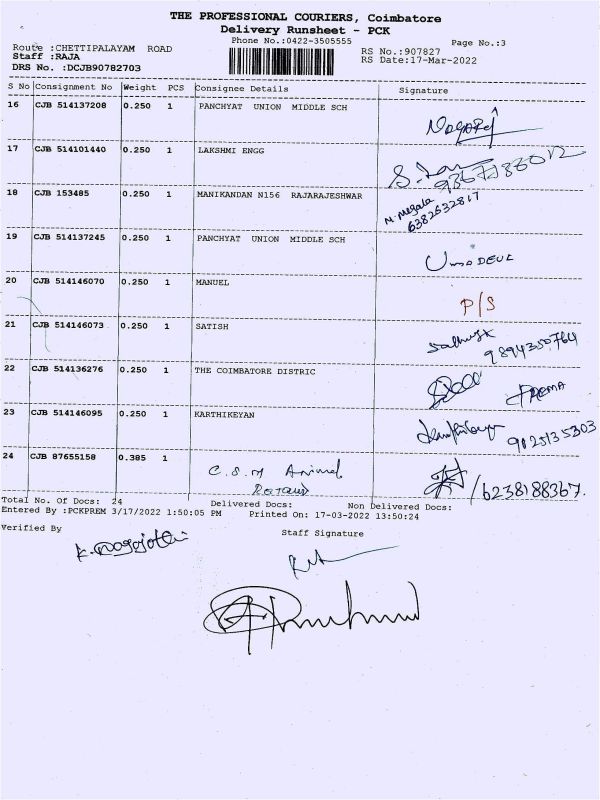 THE PROFESSIONAL COURIERS, Coimbatore
Delivery Runsheet - PCK
Phone No.:0422-3505555
Page No.:3
Route :CHETTIPALAYAM ROAD
RS No.:907827
Staff :RAJA
RS Date:17-Mar-2022
DRS No. :DCJB90782703
S No Consignment No Weight PCS Consignee Details Signature
16 CJB 514137208 0.250 1 PANCHYAT UNION MIDDLE SCH
17 CJB 514101440 0.250 1 LAKSHMI ENGG
18 CJB 153485 0.250 1 MANIKANDAN N156 RAJARAJESHWAR
6382632817
19 CJB 514137245 0.250 1 PANCHYAT UNION MIDDLE SCH
20 CJB 514146070 0.250 1 MANUEL P/S
21 CJB 514146073 0.250 1 SATISH
9894350764
22 CJB 514136276 0.250 1 THE COIMBATORE DISTRIC PREMA
23 CJB 514146095 0.250 1 KARTHIKEYAN
9025135303
24 CJB 87655158 0.385 1 C.S.M Animal /6238188367.
Total No. of Docs: 24 Delivered Docs: Non Delivered Docs:
Entered By :PCKPREM 3/17/2022 1:50:05 PM Printed On: 17-03-2022 13:50:24
Verified By Staff Signature